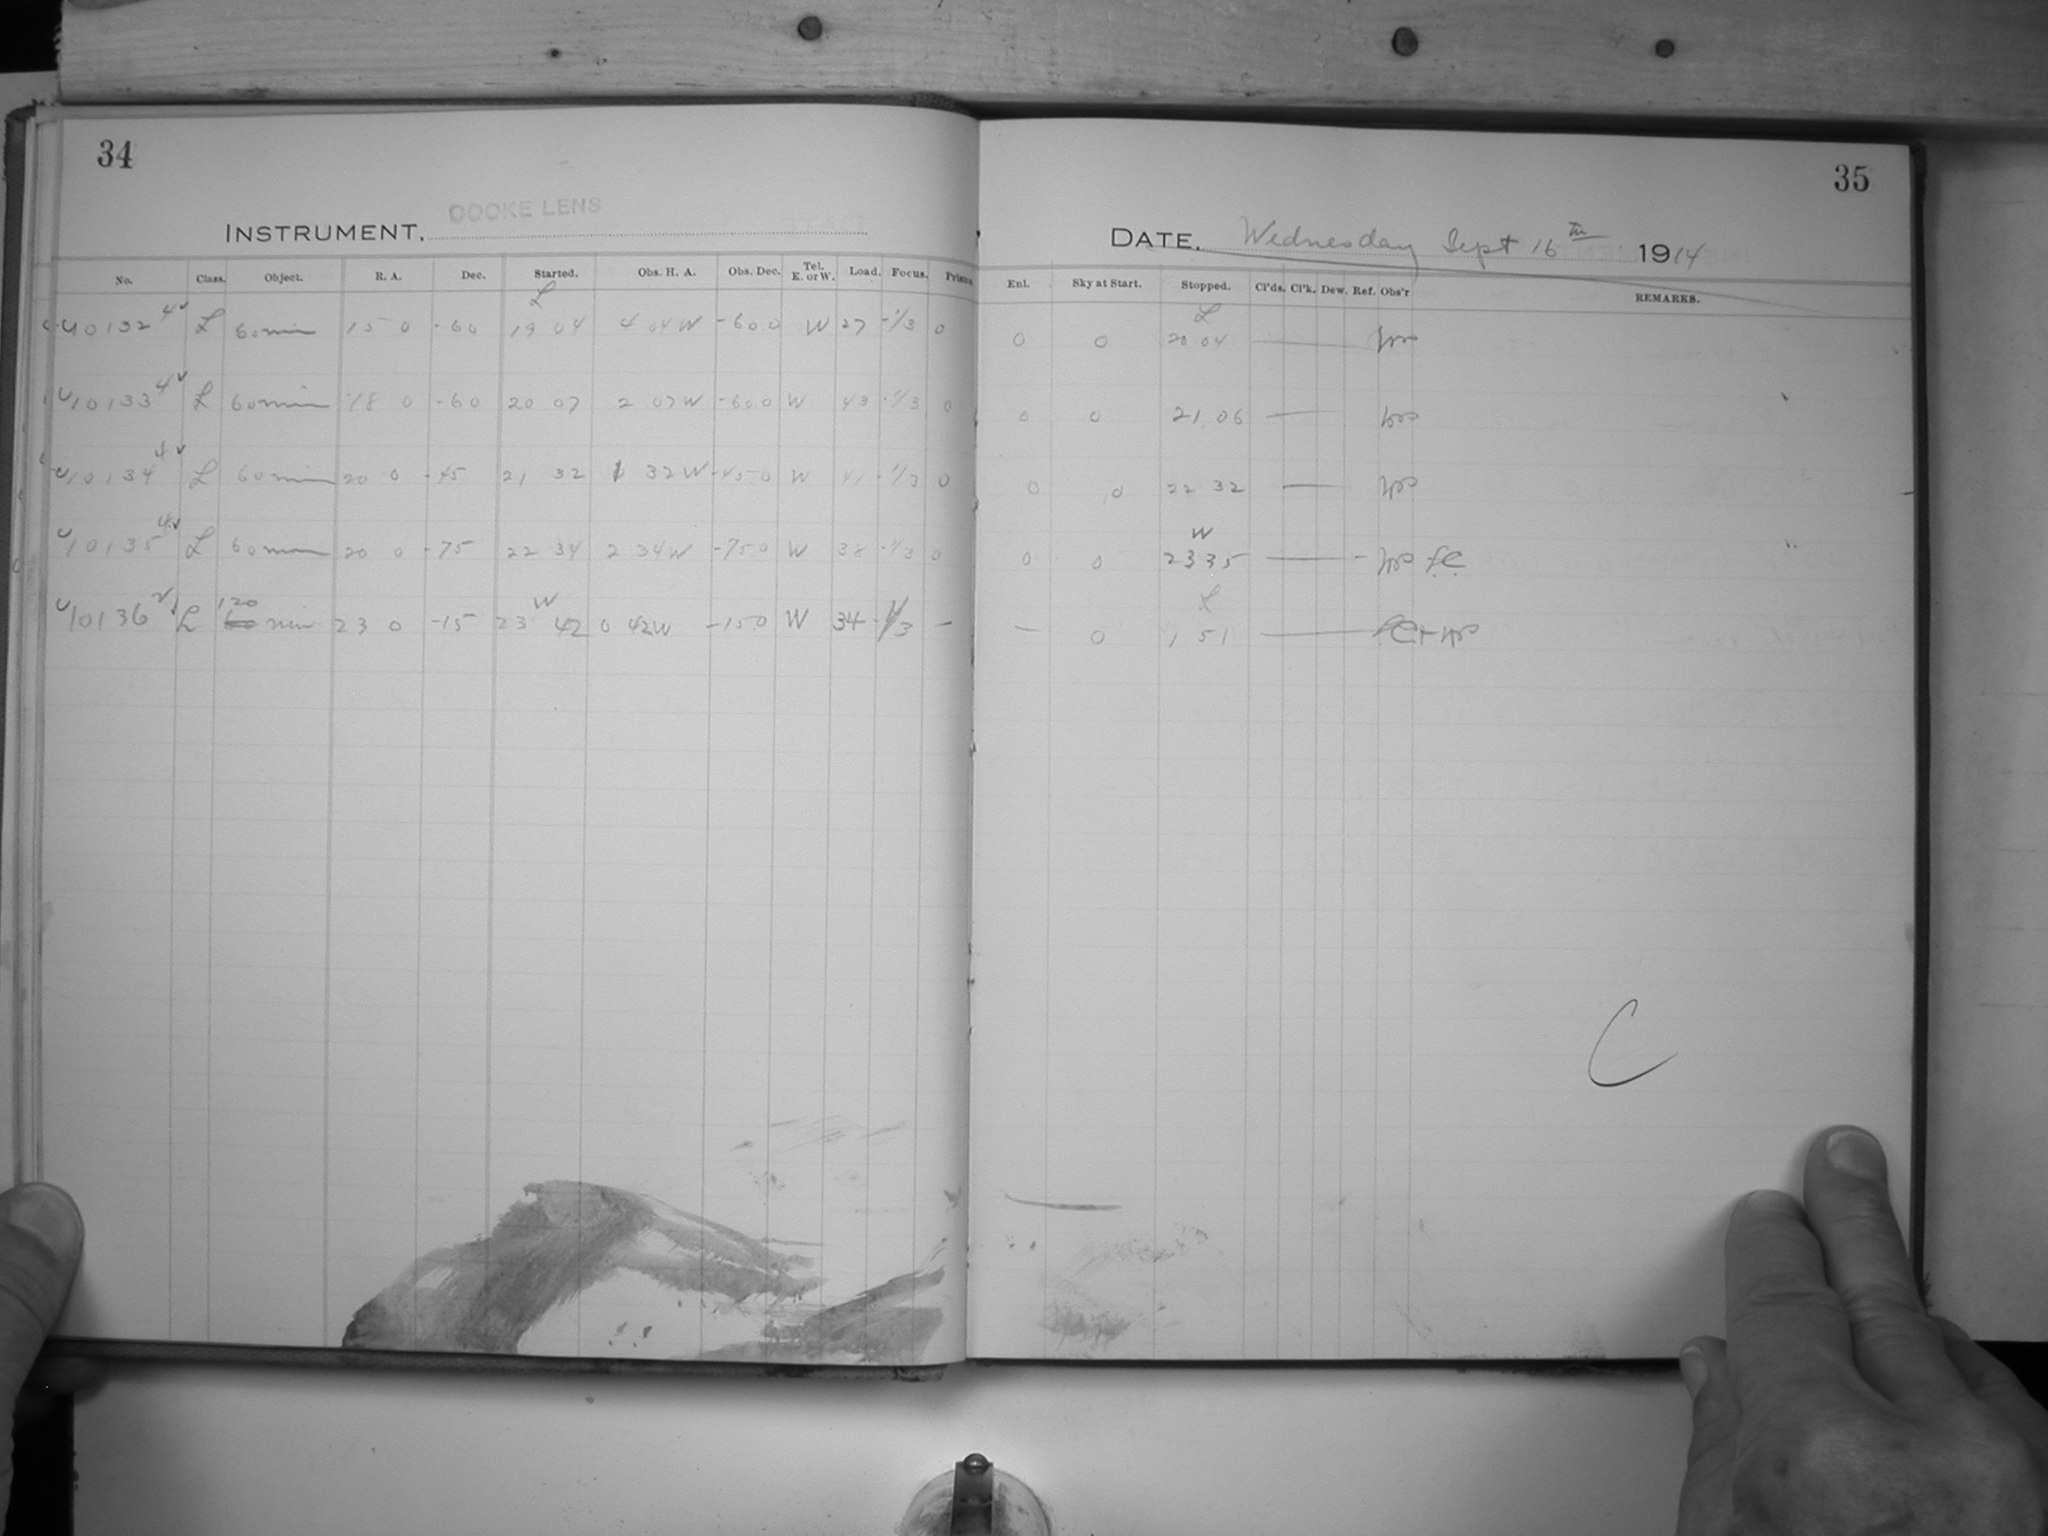 34
COOKE LENS
INSTRUMENT,
No. Class. Object. R. A. Dec. Started. Obs. H. A. Obs. Dec. Tel. E. or W. Load. Focus. Prisms.
L
10132 4 L 60 min 15 0 -60 19 04 4 04 W -60 0 W 27 -1/3 0
10133 4 L 60 min 18 0 -60 20 07 2 07 W -60 0 W 43 -1/3 0
10134 4 L 60 min 20 0 -45 21 32 1 32 W -45 0 W 41 -1/3 0
10135 4 L 60 min 20 0 -75 22 34 2 34 W -75 0 W 38 -1/3 0
120 W
10136 L 60 min 23 0 -15 23 42 0 42 W -15 0 W 34 -1/3 —
35
DATE, Wednesday Sept 16th 1914
Enl. Sky at Start. Stopped. Cl'ds. Cl'k. Dew. Ref. Obs'r REMARKS.
L
0 0 20 04
0 0 21 06
0 0 22 32
W
0 0 23 35
L
— 0 1 51
C